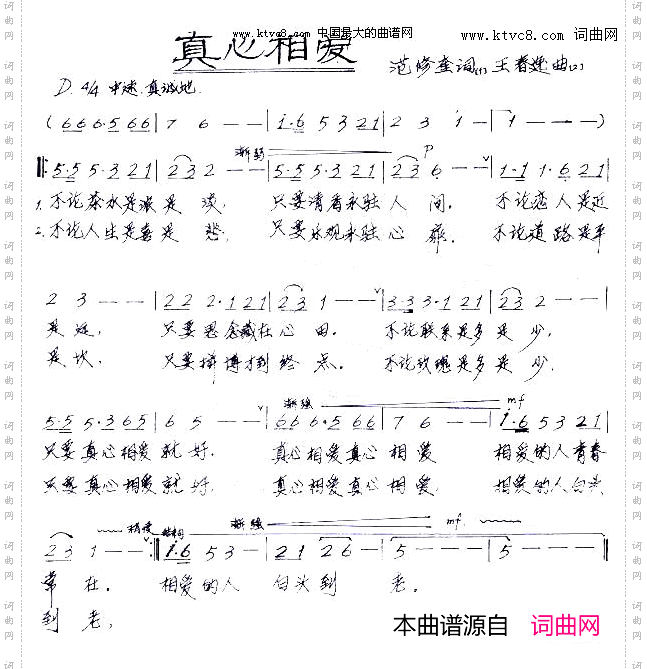 www.ktvc8.com 中国最大的曲谱网
www.ktvc8.com 词曲网
真心相爱
范修奎词(1) 王春建曲(2)
D 4/4 中速.真诚地
( 6 6 6·5 6 6 | 7 6 - - | i·6 5 3 2 1 | 2 3 1 - | 1 - - - )
渐弱 p
5·5 5·3 2 1 | 2 3 2 - - | 5·5 5·3 2 1 | 2 3 6 - - | 1·1 1·6 2 1 |
1. 不论茶水是浓是淡, 只要清香永驻人间. 不论恋人是近
2. 不论人生是喜是悲, 只要乐观来驻心扉. 不论道路是平
2 3 - - | 2 2 2·1 2 1 | 2 3 1 - - | 3·3 3·1 2 1 | 2 3 2 - - |
是远, 只要思念藏在心田. 不论联系是多是少,
是坎, 只要拼搏才到终点. 不论玫瑰是多是少,
渐强 mf
5·5 5·3 6 5 | 6 5 - - | 6 6 6·5 6 6 | 7 6 - - | i·6 5 3 2 1 |
只要真心相爱就好. 真心相爱真心相爱 相爱的人青春
只要真心相爱就好, 真心相爱真心相爱, 相爱的人白头
稍慢 结束句 渐强 mf
2 3 1 - - :| i·6 5 3 - | 2 1 2 6 - | 5 - - - | 5 - - -
常在. 相爱的人 白头到 老.
到老,
本曲谱源自 词曲网